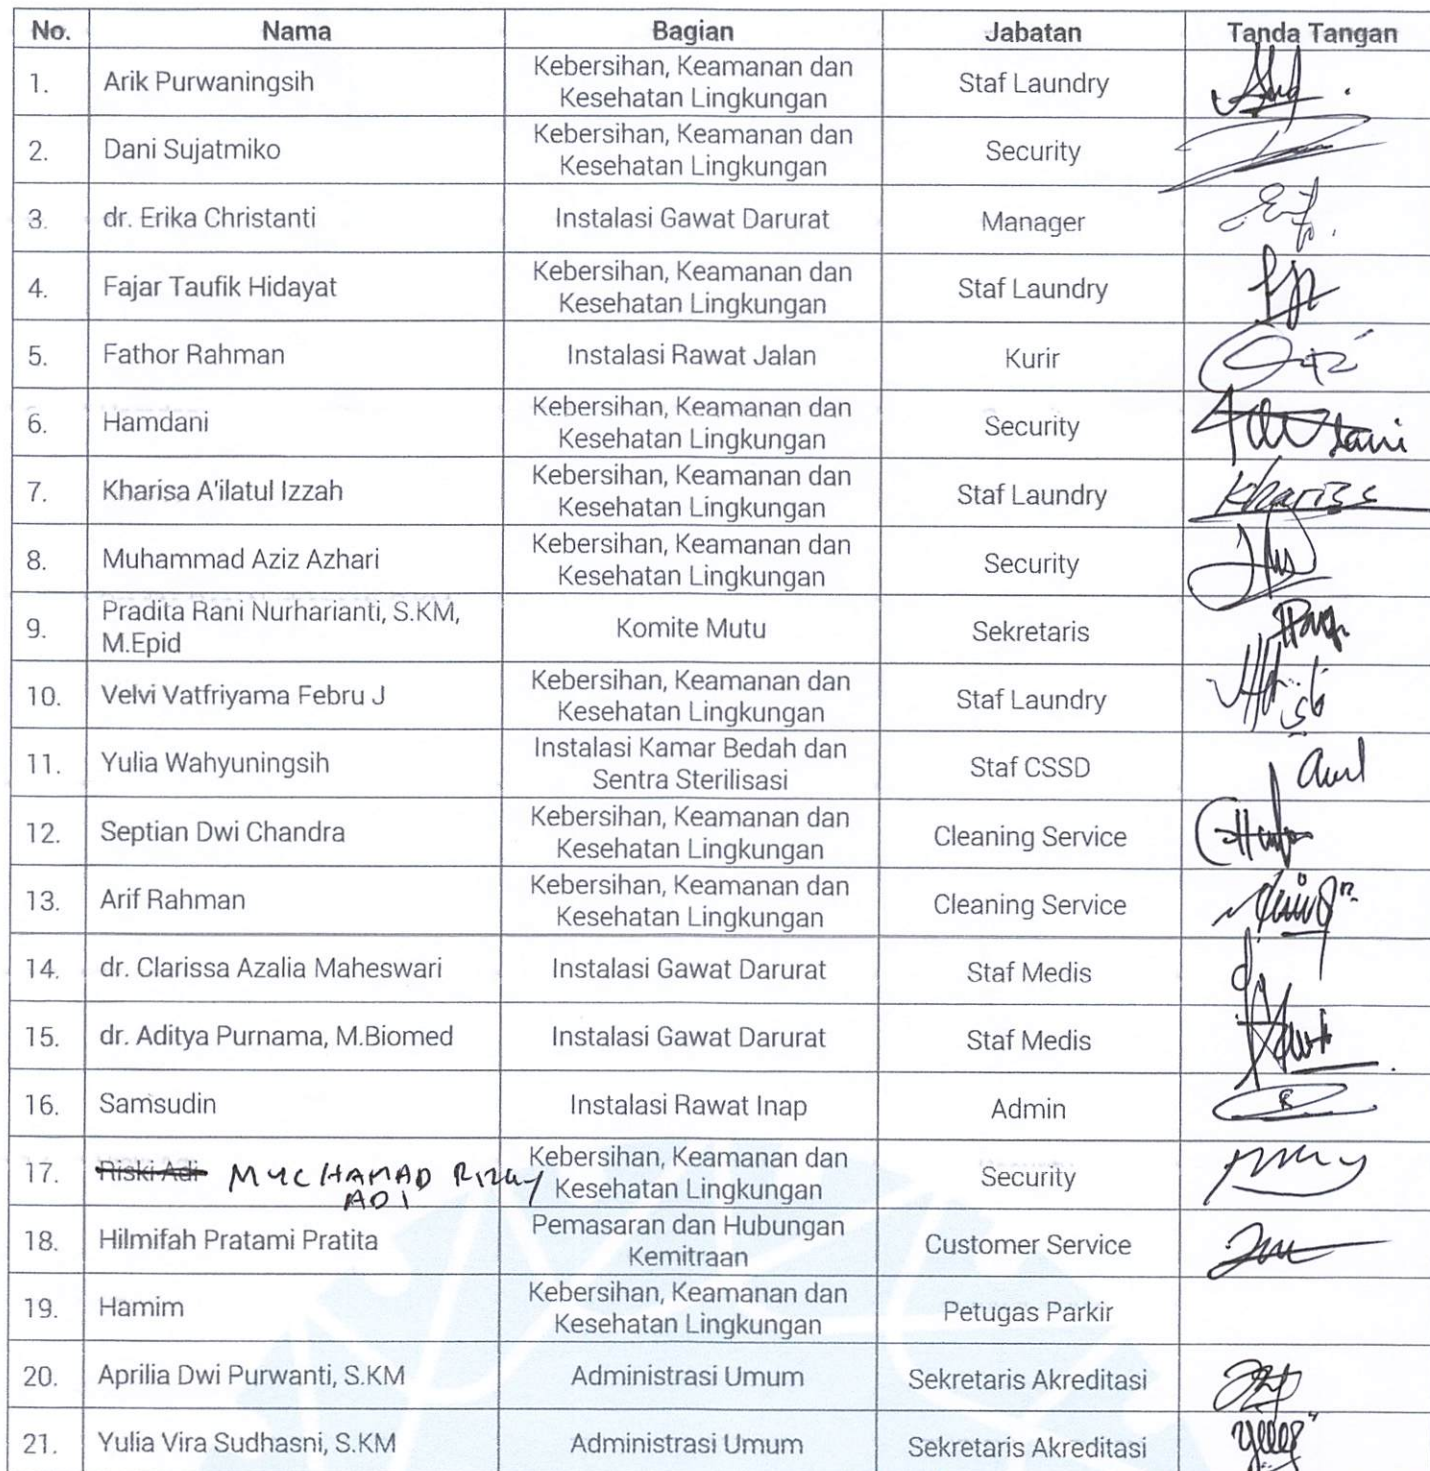 No. Nama Bagian Jabatan Tanda Tangan
1. Arik Purwaningsih Kebersihan, Keamanan dan Kesehatan Lingkungan Staf Laundry
2. Dani Sujatmiko Kebersihan, Keamanan dan Kesehatan Lingkungan Security
3. dr. Erika Christanti Instalasi Gawat Darurat Manager
4. Fajar Taufik Hidayat Kebersihan, Keamanan dan Kesehatan Lingkungan Staf Laundry
5. Fathor Rahman Instalasi Rawat Jalan Kurir
6. Hamdani Kebersihan, Keamanan dan Kesehatan Lingkungan Security
7. Kharisa A'ilatul Izzah Kebersihan, Keamanan dan Kesehatan Lingkungan Staf Laundry
8. Muhammad Aziz Azhari Kebersihan, Keamanan dan Kesehatan Lingkungan Security
9. Pradita Rani Nurharianti, S.KM, M.Epid Komite Mutu Sekretaris
10. Velvi Vatfriyama Febru J Kebersihan, Keamanan dan Kesehatan Lingkungan Staf Laundry
11. Yulia Wahyuningsih Instalasi Kamar Bedah dan Sentra Sterilisasi Staf CSSD
12. Septian Dwi Chandra Kebersihan, Keamanan dan Kesehatan Lingkungan Cleaning Service
13. Arif Rahman Kebersihan, Keamanan dan Kesehatan Lingkungan Cleaning Service
14. dr. Clarissa Azalia Maheswari Instalasi Gawat Darurat Staf Medis
15. dr. Aditya Purnama, M.Biomed Instalasi Gawat Darurat Staf Medis
16. Samsudin Instalasi Rawat Inap Admin
17. Riski Adi MUCHAMAD RIZKY ADI Kebersihan, Keamanan dan Kesehatan Lingkungan Security
18. Hilmifah Pratami Pratita Pemasaran dan Hubungan Kemitraan Customer Service
19. Hamim Kebersihan, Keamanan dan Kesehatan Lingkungan Petugas Parkir
20. Aprilia Dwi Purwanti, S.KM Administrasi Umum Sekretaris Akreditasi
21. Yulia Vira Sudhasni, S.KM Administrasi Umum Sekretaris Akreditasi